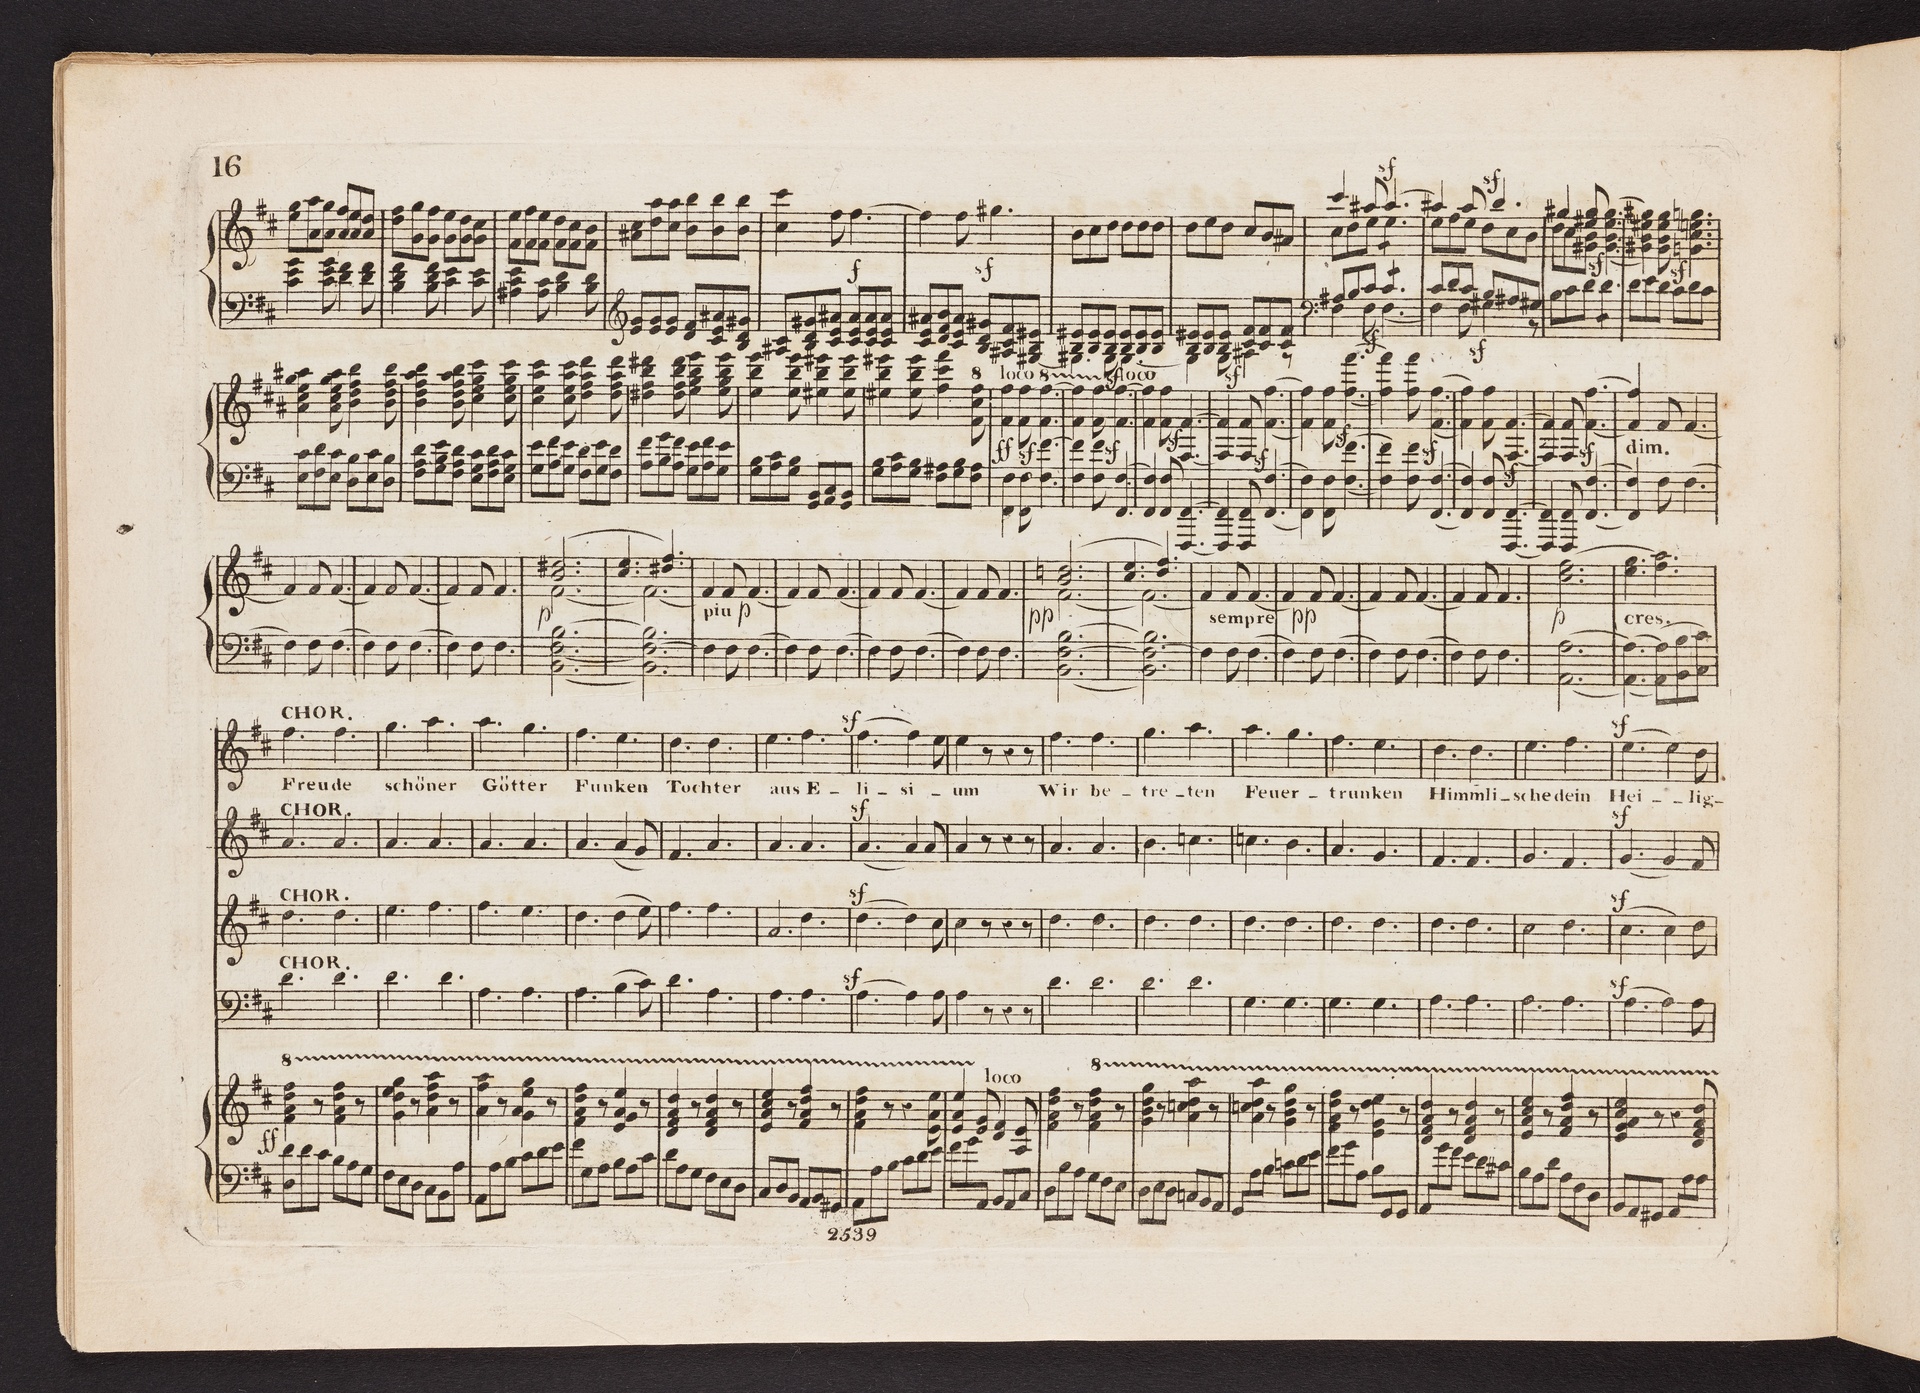 16
sf sf
f sf sf sf
sf sf
8 loco 8 sf loco sf
ff sf sf sf sf sf sf sf sf dim.
p piu p pp sempre pp p cres.
CHOR. sf sf
Freude schöner Götter Funken Tochter aus E - li - si - um Wir be - tre - ten Feuer - trunken Himmli - sche dein Hei - - lig -
CHOR. sf sf
CHOR. sf sf
CHOR. sf sf
8 loco 8
ff
2539